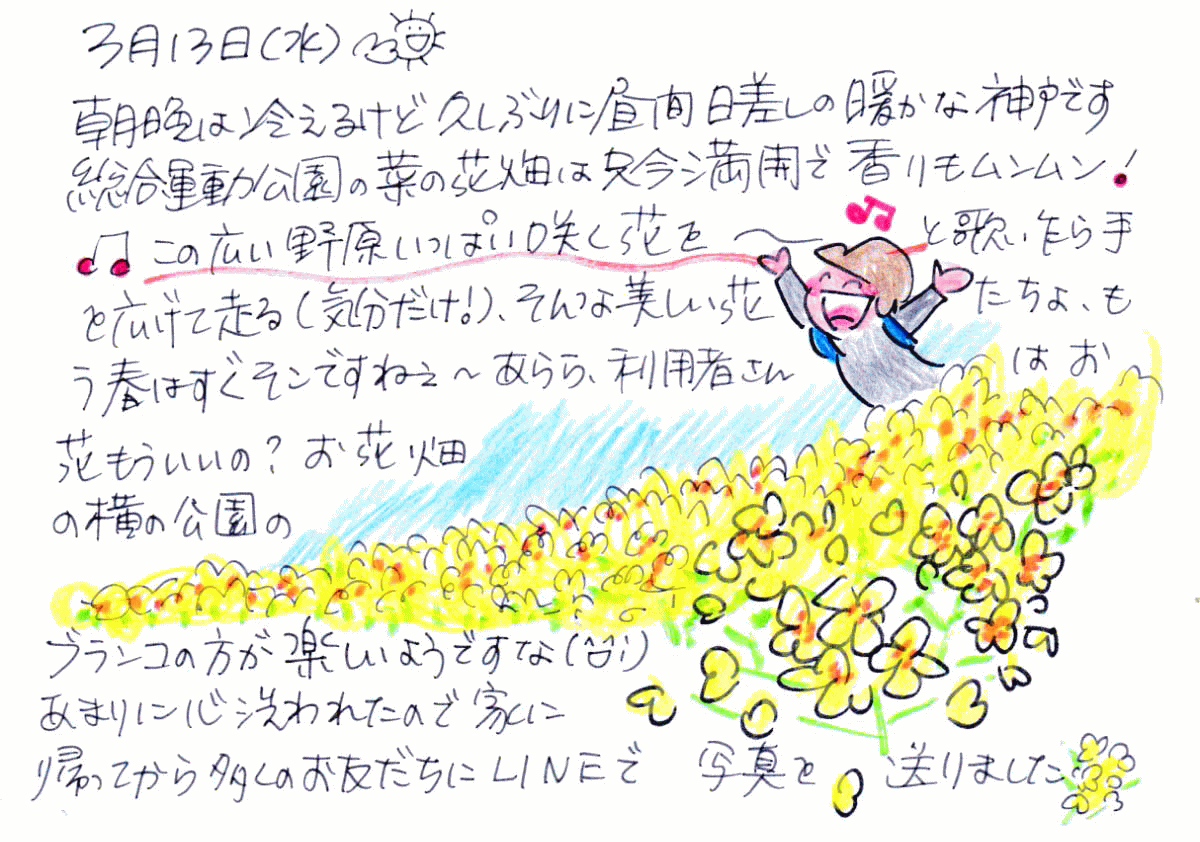 3月13日(水)
朝晩は冷えるけど久しぶりに昼間日差しの暖かな神戸です
総合運動公園の菜の花畑は只今満開で香りもムンムン!
♫この広い野原いっぱい咲く花を〜♫と歌い乍ら手
を広げて走る(気分だけ!)、そんな美しい花たちよ、も
う春はすぐそこですねぇ〜あらら、利用者さんはお
花もういいの?お花畑
の横の公園の
ブランコの方が楽しいようですな(笑)
あまりに心洗われたので家に
帰ってから多くのお友だちにLINEで写真を送りました